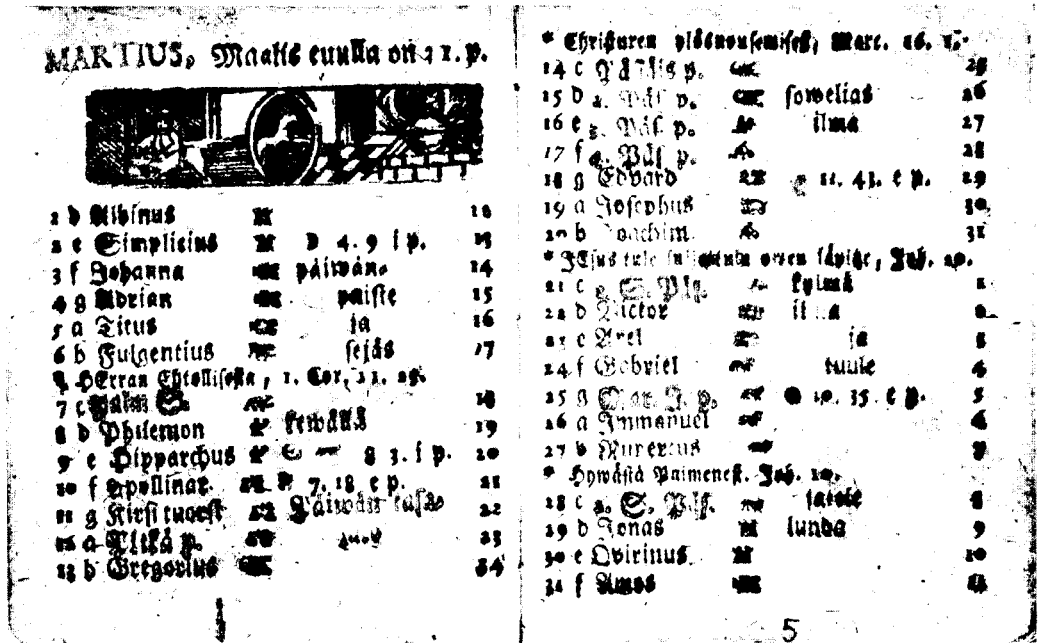 MARTIUS, Maalis cuulla on 31. p.
1 d Albinus 12
2 e Simplicius D 4. 9 i p. 13
3 f Johanna päiwän. 14
4 g Adrian paiste 15
5 a Titus ja 16
6 b Fulgentius sejäs 17
HErran Ehtollisesta, 1. Cor. 11. 23.
7 c Palm S. 18
8 d Philemon kewäuä 19
9 e Hipparchus 8 3. i p. 20
10 f Apollinar. 7. 18 e p. 21
11 g Kirsi cuorst Päiwän tasaus 22
12 a Pitkä p. 23
13 b Gregorius 24
* Christuxen ylösnousemisest, Marc. 16. 1.
14 c Pääsiäis p. 25
15 d 2. Pääs. p. sowelias 26
16 e 3. Pääs. p. ilma 27
17 f 4. Pääs. p. 28
18 g Edvard 11. 43. e p. 29
19 a Josephus 30
20 b Joachim 31
* JEsus tule suljetuin owen läpitze, Joh. 20.
21 c 1. S. Pääs. kylmä 1
22 d Victor ilma 2
23 e Axel ja 3
24 f Gabriel tuule 4
25 g Mar. J. p. 10. 35. e p. 5
26 a Immanuel 6
27 b Rupertus 7
* Hywästä Paimenest. Joh. 10.
28 c 2. S. Pääs. satele 8
29 d Jonas lunda 9
30 e Qvirinus 10
31 f Amos 11
5